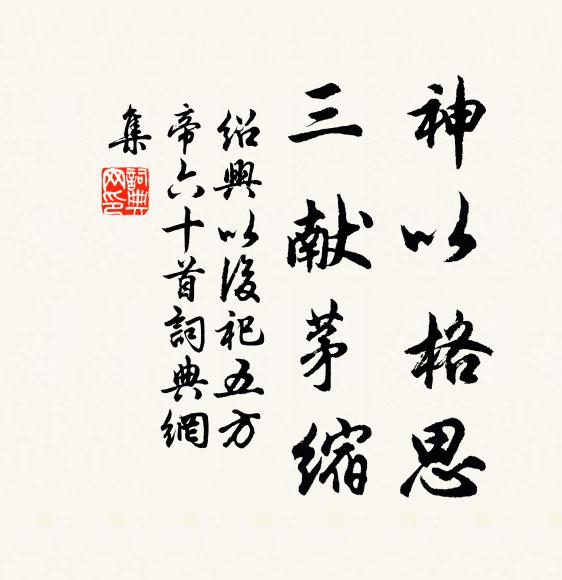 神以格思
三献茅缩
紹興以後祀五方
帝六十首詞典網
集
詞典网印